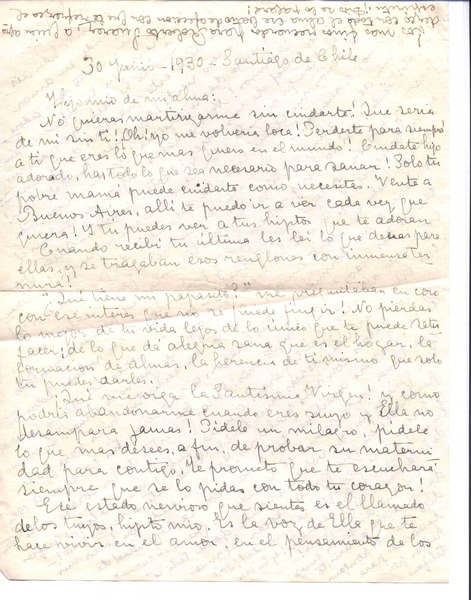 30 Junio - 1930 - Santiago de Chile
Hijo mio de mi alma:
No quieras martirizarme sin cuidarte! Que seria
de mi sin ti! Oh! yo me volveria loca! Perderte para siempre
a ti que eres lo que mas quiero en el mundo! Cuidate hijo
adorado, haz todo lo que sea necesario para sanar! Solo tu
pobre mamá puede cuidarte como necesitas. Vente a
Buenos Aires, alli te puedo ir a ver cada vez que
quiera! Y tu puedes ver a tus hijitos que te adoran
Cuando recibí tu última les leí lo que decias para
ellas, y se tragaban esos renglones con inmensa ter
nura!
"Qué tiene mi papasito?" me preguntaban en coro
con ese interés que no se puede fingir! No pierdas
lo mejor de tu vida lejos de lo único que te puede satis
facer; de lo que dá alegria sana que es el hogar, la
formacion de almas, la herencia de ti mismo que solo
tu puedes darles.
Que me oiga la Santísima Virgen! y como
podrá abandonarme cuando eres suyo y Ella no
desampara jamas! Pidele un milagro, pidele
lo que mas desees, a fin de probar su materni
dad para contigo. Te prometo que te escuchará
siempre que se lo pidas con todo tu corazon!
Ese estado nervioso que sientes es el llamado
de los tuyos, hijito mio. Es la voz de Ella que te
hace vivir en el amor, en el pensamiento de los